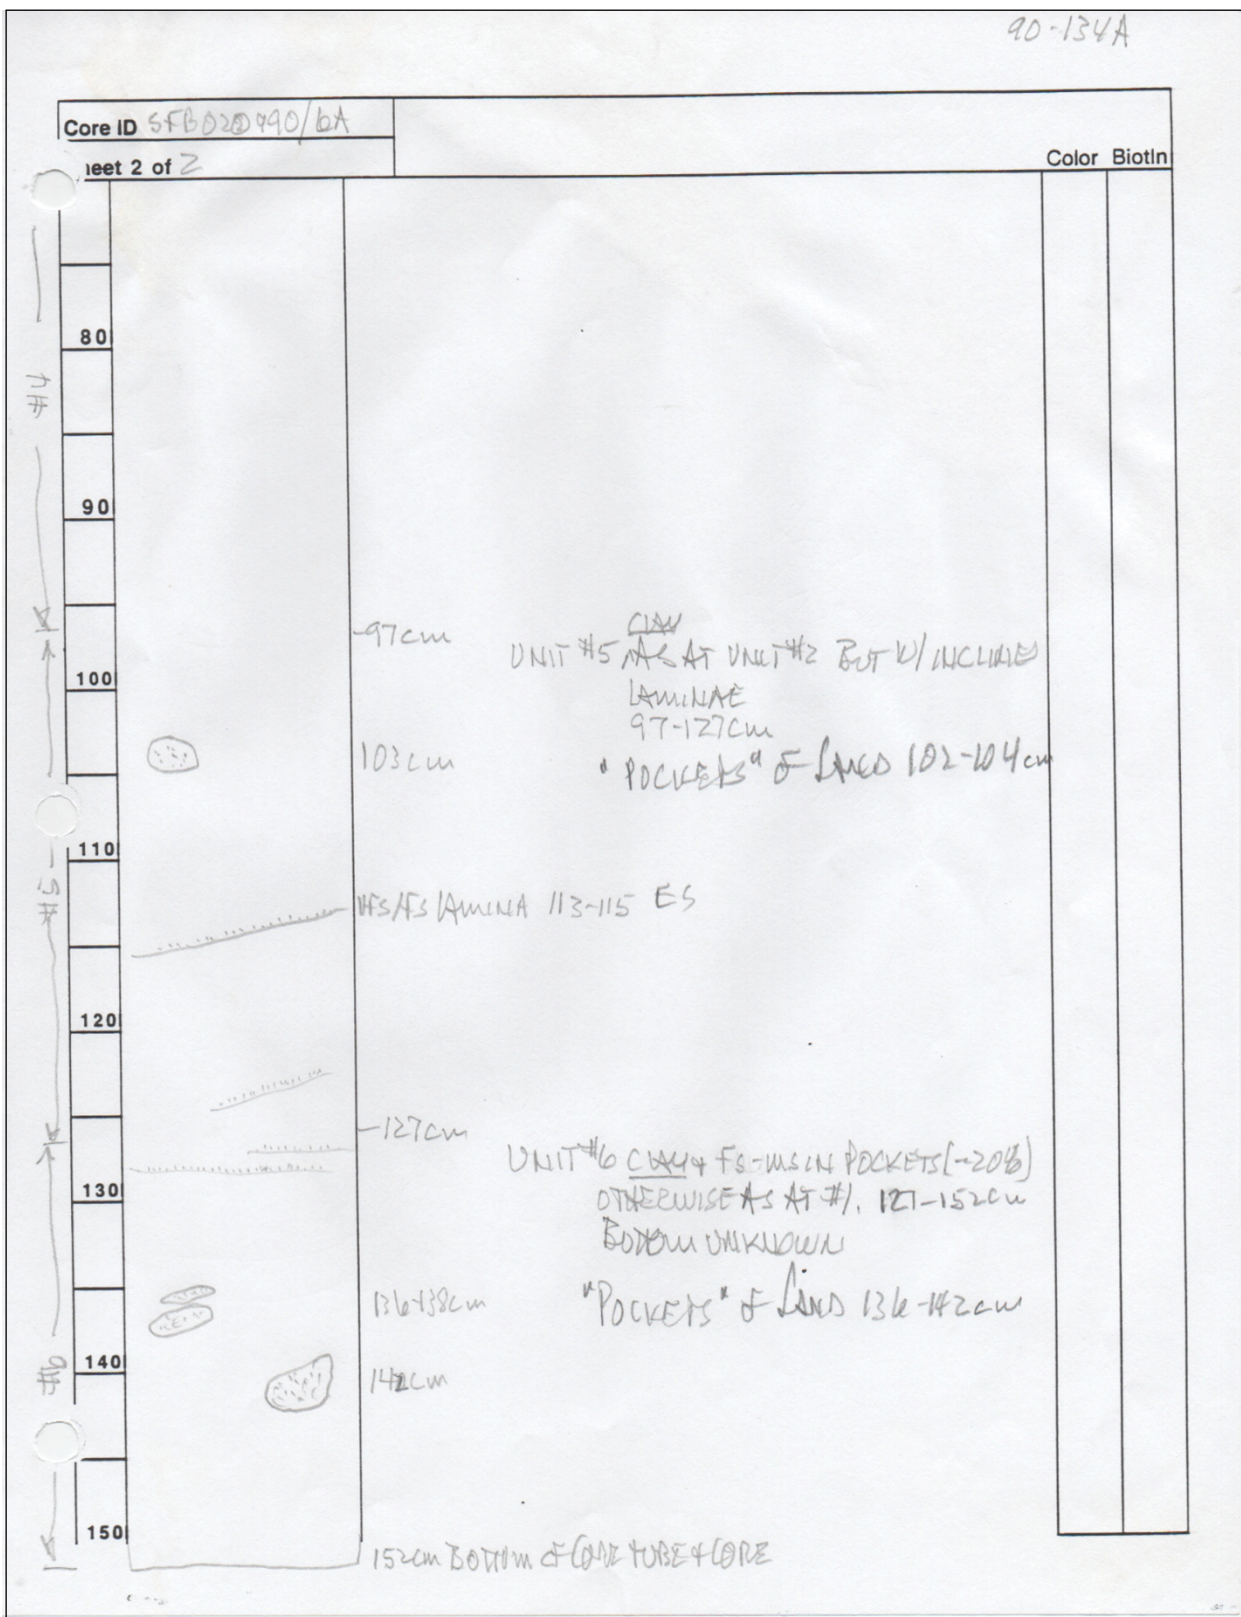 90-134A
Core ID SFB020790/6A
heet 2 of 2
Color BiotIn
80
#4
90
-97cm
CLAY
UNIT #5 AS AT UNIT #2 BUT W/ INCLINED
LAMINAE
97-127cm
100
103cm
"POCKETS" OF SAND 102-104cm
110
#5
VFS/FS LAMINA 113-115 ES
120
-127cm
UNIT #6 CLAY + FS-MS IN POCKETS (~20%)
OTHERWISE AS AT #1. 127-152cm
BOTTOM UNKNOWN
130
136+138cm
"POCKETS" OF SAND 136-142cm
140
142cm
#6
150
152cm BOTTOM OF CORE TUBE + CORE